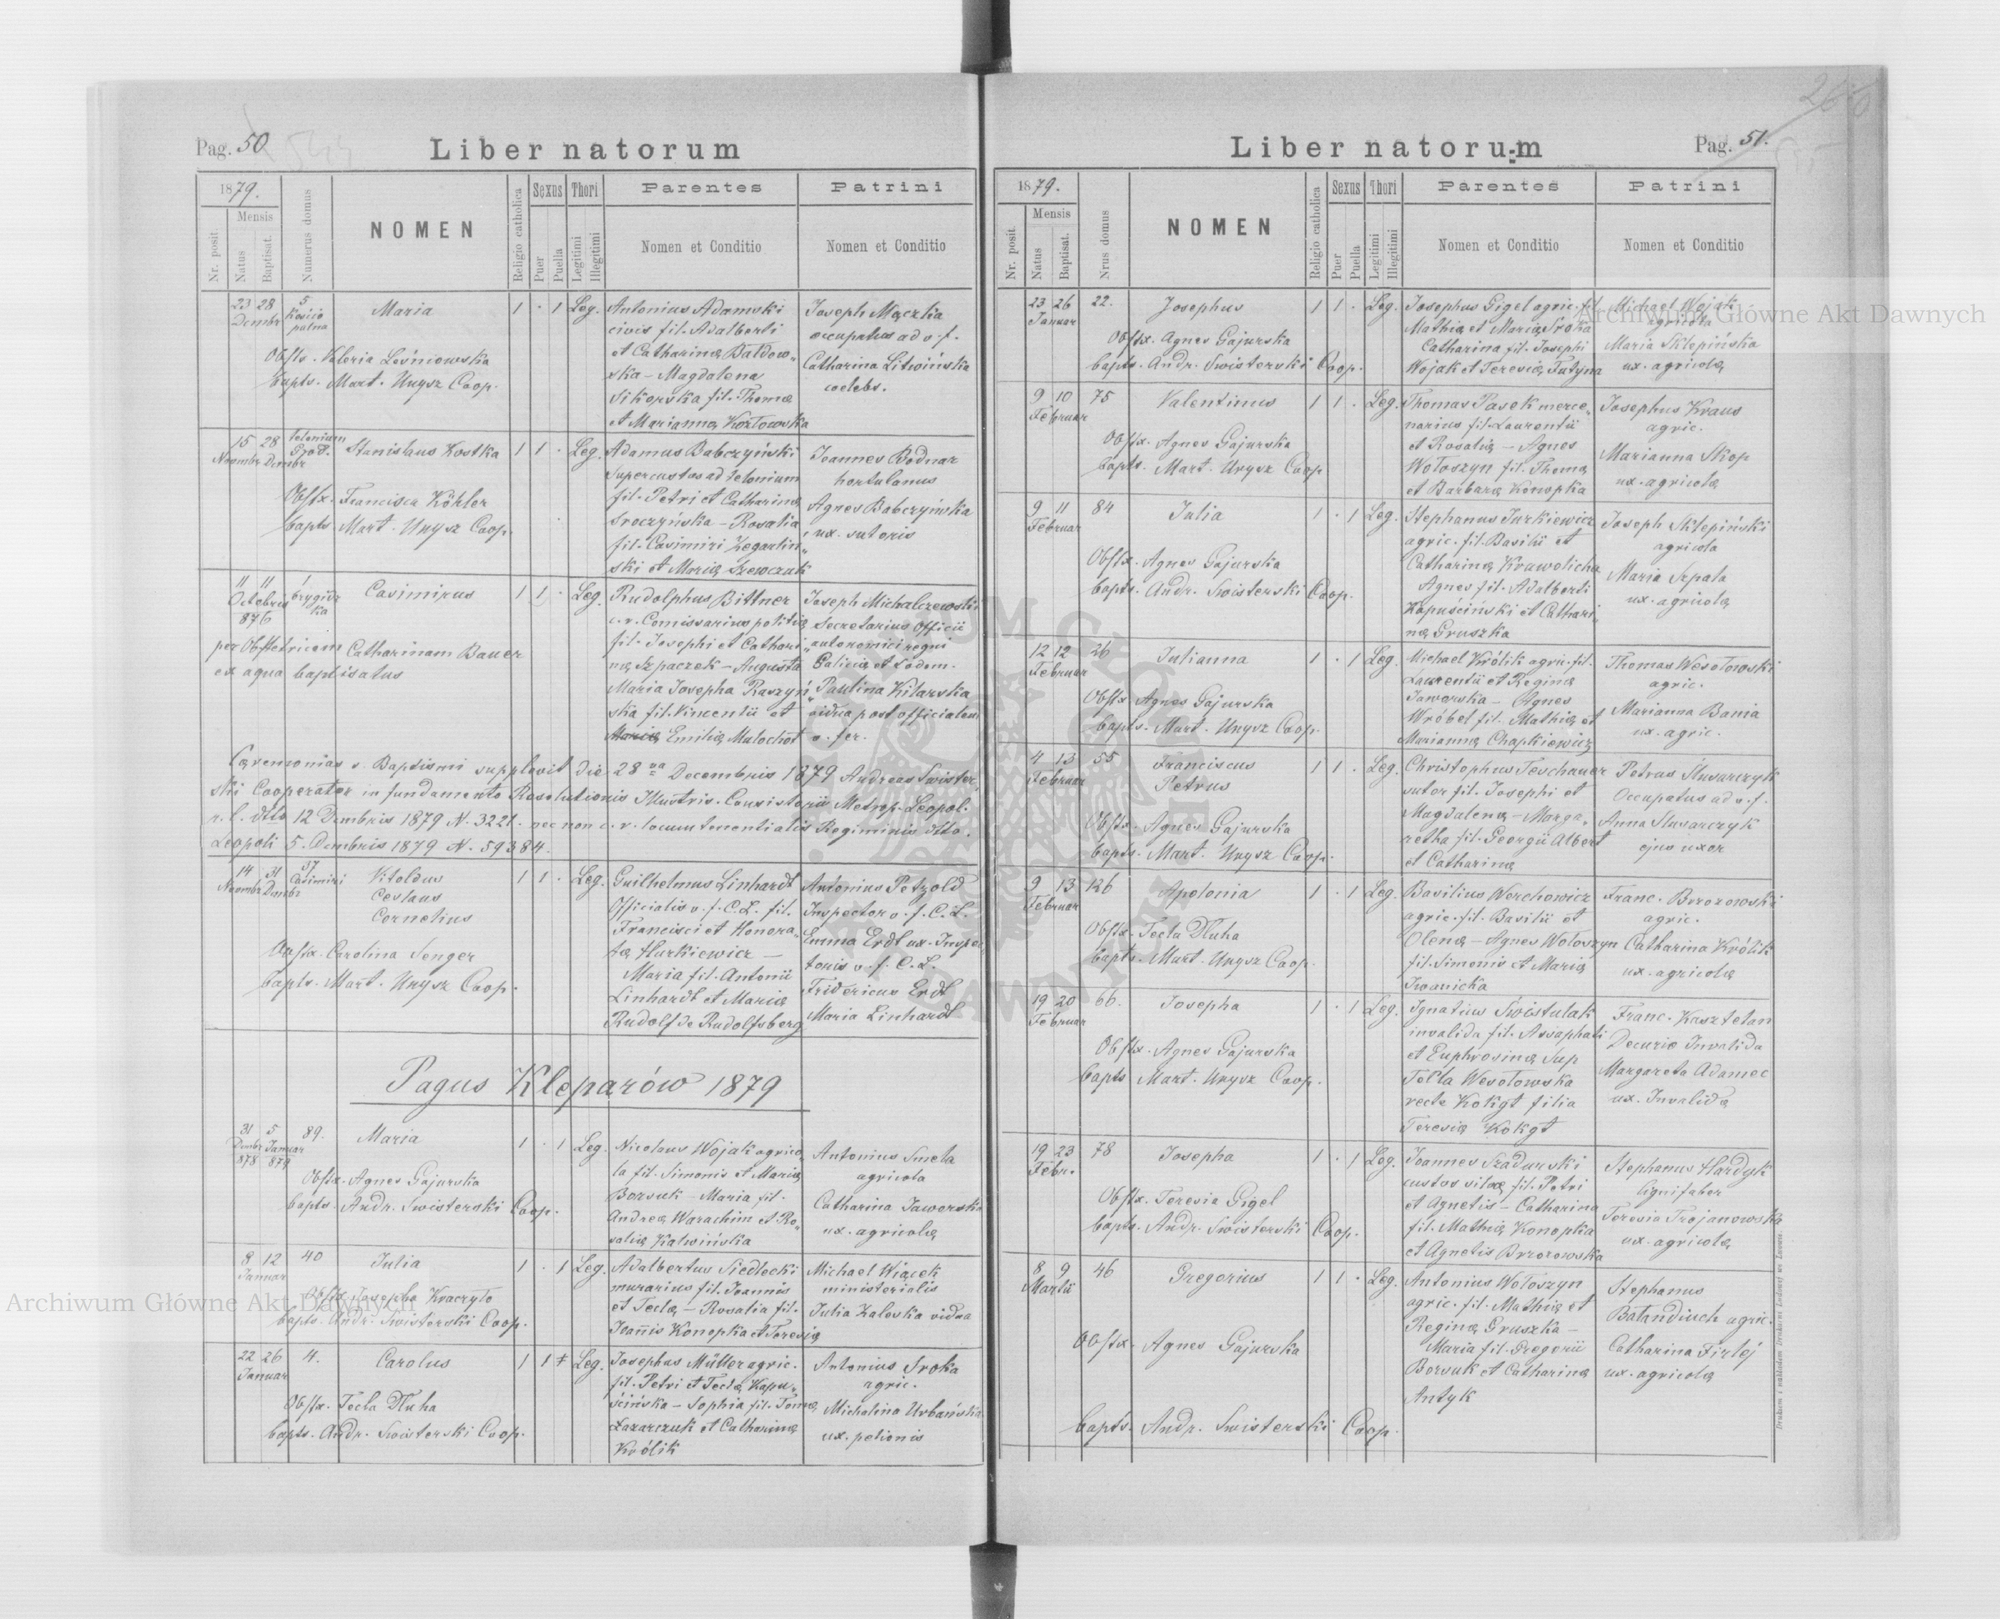 Pag. 50
Liber natorum
1879.
Nr. posit
Mensis
Natus
Baptisat.
Numerus domus
NOMEN
Religio catholica
Sexus
Puer
Puella
Thori
Legitimi
Illegitimi
Parentes
Nomen et Conditio
Patrini
Nomen et Conditio
23 28
Dcmbr
5
Maria
1 . 1 Leg.
Obstx. Valeria Leśniowska
bapts. Mart. Unysz Coop.
Antonius Adamski
civis fil. Adalberti
et Catharinæ Bałdow-
ska - Magdalena
Sikorska fil. Thomæ
et Mariannæ Kozłowska
Joseph Mączka
occupatus ad v. f.
Catharina Litwińska
coelebs.
15 28
Novmbr Dcmbr
telonium
Grod.
Stanislaus Kostka
1 1 . Leg.
Obstx. Francisca Köhler
bapts. Mart. Unysz Coop.
Adamus Babczyński
supercustos ad telonium
fil. Petri et Catharinæ
Sroczyńska - Rosalia
fil. Casimiri Zegartin-
ski et Mariæ Szewczuk
Joannes Bodnar
hortulanus
Agnes Babczyńska
ux. sutoris
11 11
Octobris
876
brygidz
ka
Casimirus
1 1 . Leg.
per Obstetricem Catharinam Bauer
ex aqua baptisatus
Rudolphus Bittner
c. r. Comissarius politiæ
fil. Josephi et Cathari-
næ Szpaczek - Augusta
Maria Josepha Raszyń-
ska fil. Vincentii et
Mariæ Emiliæ Mulochot
Joseph Michalczewski
Secretarius Officii
autonomici regni
Galiciæ et Lodom.
Paulina Kilarska
vidua post officialem
v. fer.
Cæremonias v. Baptismi supplevit die 28va Decembris 1879 Andreas Swister-
ski Cooperator in fundamento Resolutionis Illustris. Consistorii Metrop. Leopol.
r. l. dtto 12 Dcmbris 1879 N. 3221. nec non c. r. locumtenentialis Regiminis dtto.
Leopoli 5. Dcmbris 1879 N. 59384.
14 31
Novmbr Dcmbr
37
Casimiri
Vitoldus
Ceslaus
Cornelius
1 1 . Leg.
Obstx. Carolina Senger
bapts. Mart. Unysz Coop.
Guilhelmus Linhardt
Officialis v. f. C. L. fil.
Francisci et Honora-
tæ Hurkiewicz -
Maria fil. Antonii
Linhardt et Mariæ
Rudolf de Rudolfsberg
Antonius Petzold
Inspector v. f. C. L.
Emma Erdl ux. Inspec-
toris v. f. C. L.
Fridericus Erdl
Maria Linhardt
Pagus Kleparów 1879
31 5
Dcmbr Januar
878 879
89.
Maria
1 . 1 Leg.
Obstx. Agnes Gajurska
bapts. Andr. Swisterski Coop.
Nicolaus Wojak agrico-
la fil. Simonis et Mariæ
Borsuk - Maria fil.
Andreæ Warachim et Ro-
saliæ Kalwińska
Antonius Smeta
agricola
Catharina Jaworska
ux. agricolæ
8 12
Januar
40
Julia
1 . 1 Leg.
Obstx. Josepha Kraczyło
bapts. Andr. Swisterski Coop.
Adalbertus Siedlecki
murarius fil. Joannis
et Teclæ - Rosalia fil.
Joannis Konopka et Teresiæ
Michael Wiącek
ministerialis
Julia Zaleska vidua
22 26
Januar
4.
Carolus
1 1 Leg.
Obstx. Tecla Dłuha
bapts. Andr. Swisterski Coop.
Josephus Müller agric.
fil. Petri et Teclæ Kapu-
ścińska - Sophia fil. Tomæ
Łazarczuk et Catharinæ
Królik
Antonius Sroka
agric.
Michalina Urbańska
ux. pelionis
Pag. 51.
Liber natorum
1879.
Nr. posit.
Mensis
Natus
Baptisat.
Nrus domus
NOMEN
Religio catholica
Sexus
Puer
Puella
Thori
Legitimi
Illegitimi
Parentes
Nomen et Conditio
Patrini
Nomen et Conditio
23 26
Januar
22.
Josephus
1 1 . Leg.
Obstx. Agnes Gajurska
bapts. Andr. Swisterski Coop.
Josephus Gigel agric. fil.
Mathiæ et Mariæ Sroka
Catharina fil. Josephi
Wojak et Teresiæ Futyna
Michael Wojak
agricola
Maria Sklepińska
ux. agricolæ
9 10
Februar
75
Valentinus
1 1 . Leg.
Obstx. Agnes Gajurska
bapts. Mart. Unysz Coop.
Thomas Pasek merce-
narius fil. Laurentii
et Rosaliæ - Agnes
Wołoszyn fil. Thomæ
et Barbaræ Konopka
Josephus Kraus
agric.
Marianna Skop
ux. agricolæ
9 11
Februar
84
Julia
1 . 1 Leg.
Obstx. Agnes Gajurska
bapts. Andr. Swisterski Coop.
Stephanus Jurkiewicz
agric. fil. Basilii et
Catharinæ Krawolicha
Agnes fil. Adalberti
Kapuściński et Cathari-
næ Gruszka
Joseph Sklepiński
agricola
Maria Szpala
ux. agricolæ
12 12
Februar
26
Julianna
1 . 1 Leg.
Obstx. Agnes Gajurska
bapts. Mart. Unysz Coop.
Michael Królik agric. fil.
Laurentii et Reginæ
Jaworska - Agnes
Wróbel fil. Mathiæ et
Mariannæ Chapkiewicz
Thomas Wesołowski
agric.
Marianna Bania
ux. agric.
4 13
Februar
55
Franciscus
Petrus
1 1 . Leg.
Obstx. Agnes Gajurska
bapts. Mart. Unysz Coop.
Christophus Teschauer
sutor fil. Josephi et
Magdalenæ - Marga-
retha fil. Georgii Albert
et Catharinæ
Petrus Slusarczyk
Occupatus ad v. f.
Anna Slusarczyk
ejus uxor
9 13
Februar
126
Apolonia
1 . 1 Leg.
Obstx. Tecla Dłuha
bapts. Mart. Unysz Coop.
Basilius Werchowicz
agric. fil. Basilii et
Olenæ - Agnes Wołoszyn
fil. Simonis et Mariæ
Iwanicka
Franc. Brzozowski
agric.
Catharina Królik
ux. agricolæ
19 20
Februar
66.
Josepha
1 . 1 Leg.
Obstx. Agnes Gajurska
bapts Mart. Unysz Coop.
Ignatius Swistulak
invalida fil. Assaphati
et Euphrosinæ Sup
Tekla Wesołowska
recte Kokgt filia
Teresiæ Kokgt
Franc. Kasztelan
Decurio Invalida
Margareta Adamec
ux. Invalidæ
19 23
Febr.
78
Josepha
1 . 1 Leg.
Obstx. Teresia Gigel
bapts. Andr. Swisterski Coop.
Joannes Szadurski
custos silvæ fil. Petri
et Agnetis - Catharina
fil. Mathiæ Konopka
et Agnetis Brzozowska
Stephanus Hardyk
lignifaber
Teresia Trojanowska
ux. agricolæ
8 9
Martii
46
Gregorius
1 1 . Leg.
Obstx. Agnes Gajurska
bapts. Andr. Swisterski Coop.
Antonius Wołoszyn
agric. fil. Mathiæ et
Reginæ Gruszka -
Maria fil. Gregorii
Borsuk et Catharinæ
Antyk
Stephanus
Bałandiuch agric.
Catharina Firlej
ux. agricolæ
Archiwum Główne Akt Dawnych
Archiwum Główne Akt Dawnych